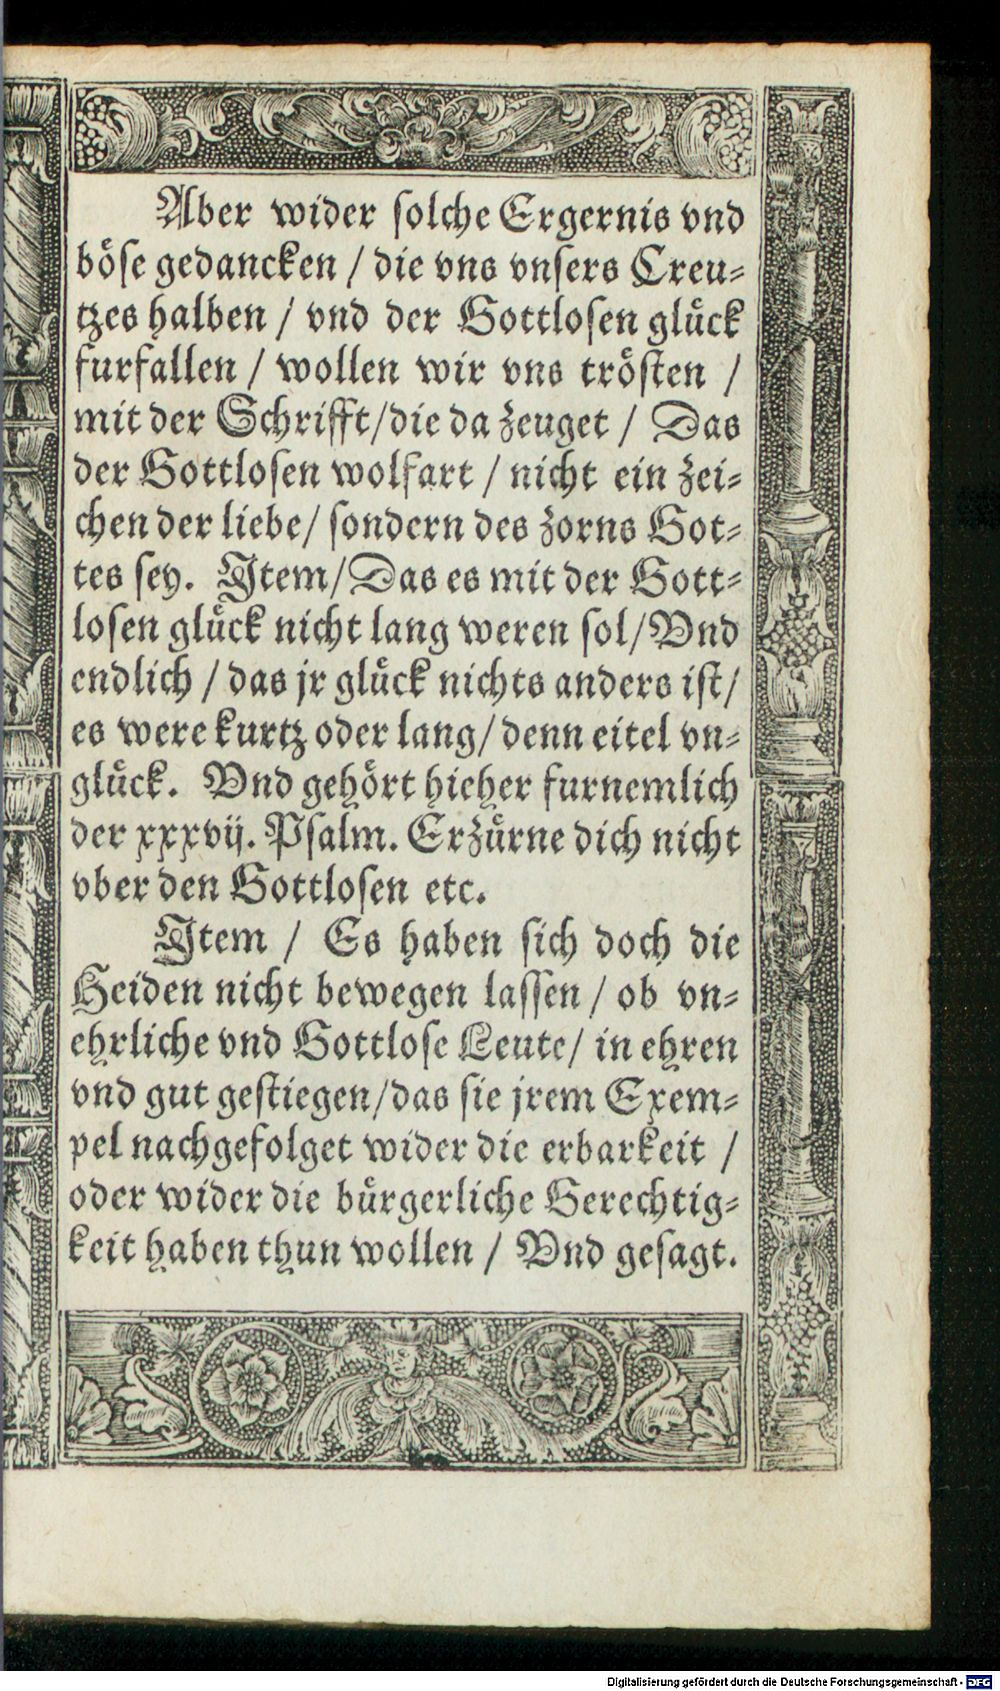 Aber wider solche Ergernis vnd
böse gedancken / die vns vnsers Creu-
tzes halben / vnd der Gottlosen glück
furfallen / wollen wir vns trösten /
mit der Schrifft/die da zeuget / Das
der Gottlosen wolfart / nicht ein zei-
chen der liebe/ sondern des zorns Got-
tes sey. Jtem/Das es mit der Gott-
losen glück nicht lang weren sol/Vnd
endlich / das jr glück nichts anders ist/
es were kurtz oder lang/ denn eitel vn-
glück. Vnd gehört hieher furnemlich
der xxxvij. Psalm. Erzürne dich nicht
vber den Gottlosen etc.
Jtem / Es haben sich doch die
Heiden nicht bewegen lassen / ob vn-
ehrliche vnd Gottlose Leute/ in ehren
vnd gut gestiegen/das sie jrem Exem-
pel nachgefolget wider die erbarkeit /
oder wider die bürgerliche Gerechtig-
keit haben thun wollen / Vnd gesagt.
Digitalisierung gefördert durch die Deutsche Forschungsgemeinschaft - DFG